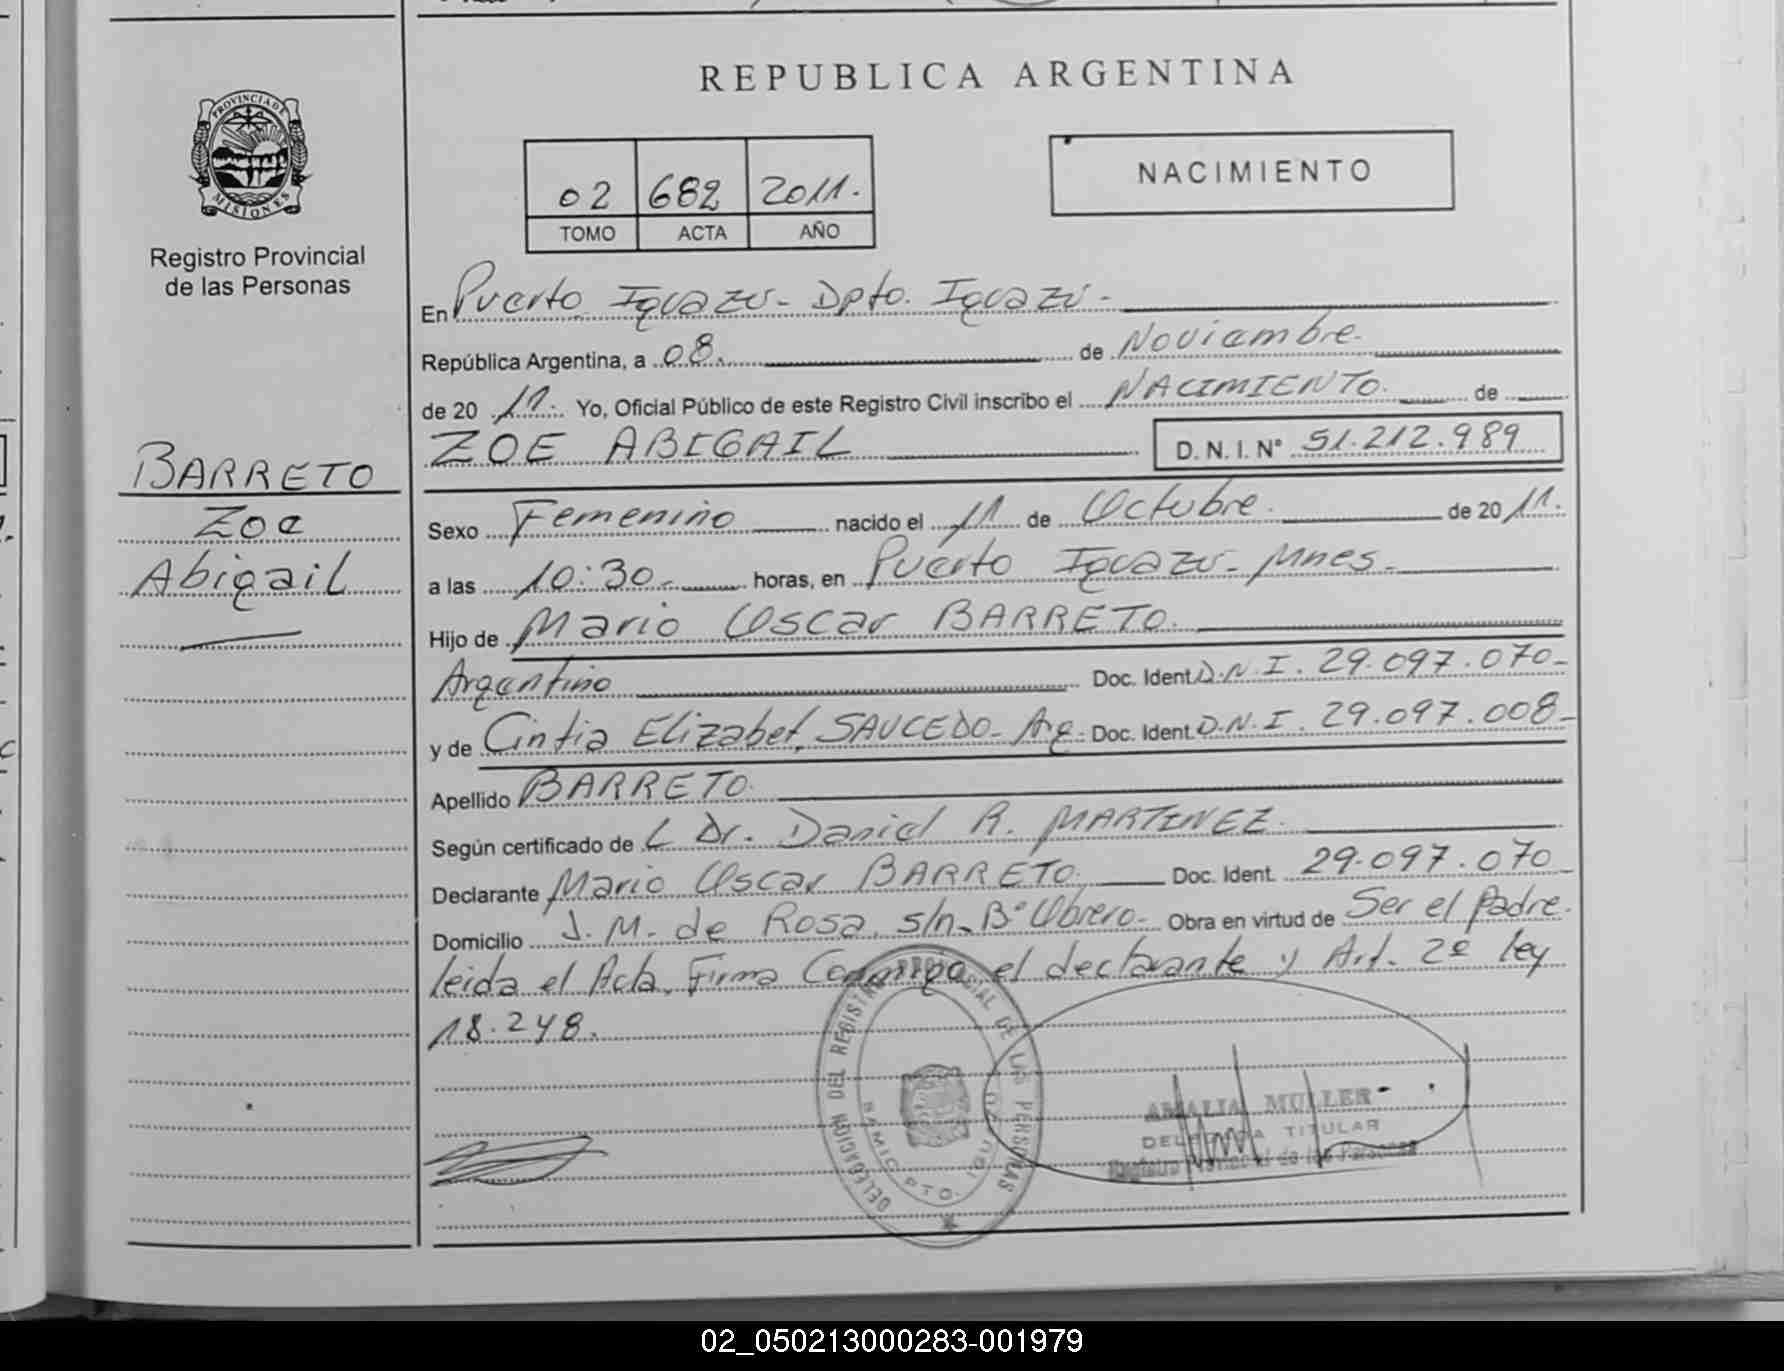 REPUBLICA ARGENTINA
PROVINCIA DE
MISIONES
Registro Provincial
de las Personas
02 682 2011.
TOMO ACTA AÑO
NACIMIENTO
En Puerto Iguazú - Dpto. Iguazú -
República Argentina, a 08. de Noviembre.
de 20 11. Yo, Oficial Público de este Registro Civil inscribo el NACIMIENTO de
ZOE ABIGAIL D. N. I. Nº 51.212.989
BARRETO
Zoe
Abigail
Sexo Femenino nacido el 11 de Octubre. de 20 11.
a las 10:30 - horas, en Puerto Iguazú - Mnes -
Hijo de Mario Oscar BARRETO.
Argentino Doc. Ident. D.N.I. 29.097.070-
y de Cintia Elizabet, SAUCEDO - Arg - Doc. Ident. D.N.I. 29.097.008-
Apellido BARRETO.
Según certificado de L Dr. Daniel R. MARTINEZ.
Declarante Mario Oscar BARRETO, Doc. Ident. 29.097.070
Domicilio J. M. de Rosa, s/n - Bº Obrero - Obra en virtud de Ser el Padre.
leida el Acta, Firma Conmigo el declarante y Art. 2º ley
18.248.
DELEGACION DEL REGISTRO PROVINCIAL DE LAS PERSONAS
DPTO. IGUAZU
AMALIA MULLER
DELEGADA TITULAR
Registro Provincial de las Personas
02_050213000283-001979